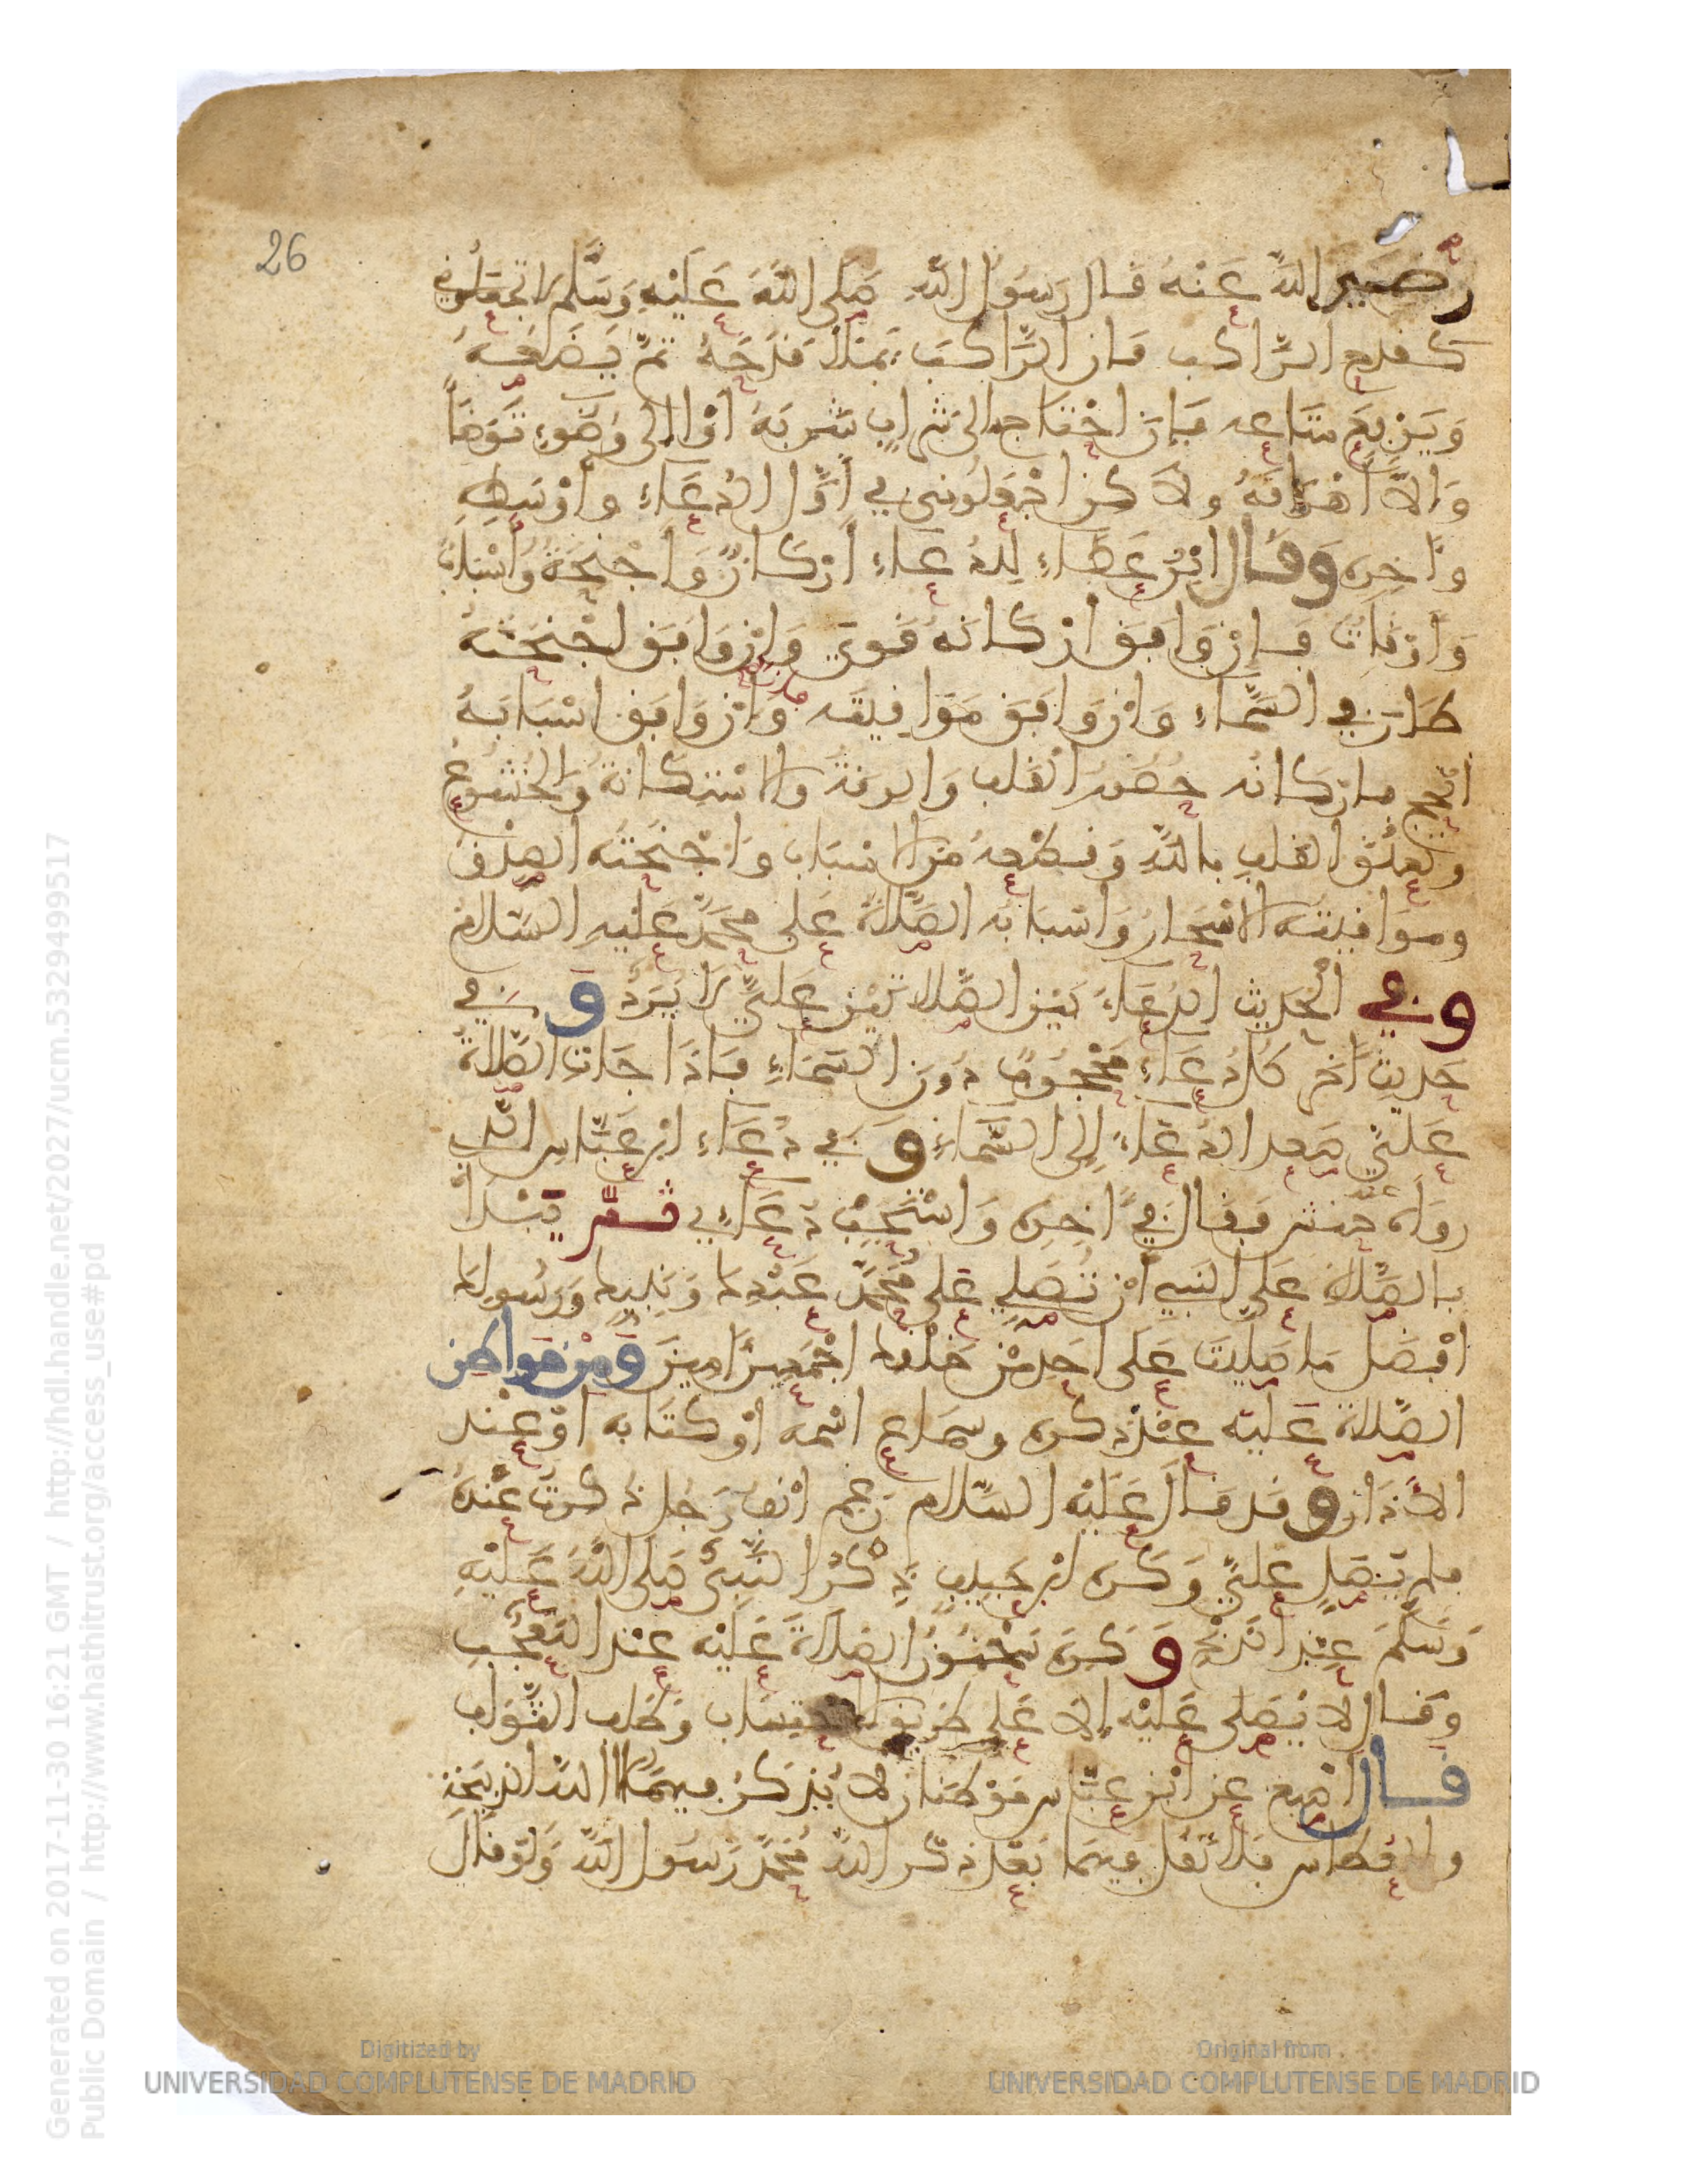 26
رضي الله عنه قال رسول الله صلى الله عليه وسلم لا تجعلوني
كقدح الراكب فان الراكب يملا قدحه ثم يضعه
ويرفع متاعه فان احتاج الى شراب شربه او الى وضوء توضأ
والا اهراقه ولاكن اجعلوني في أول الدعاء وأوسطه
وءاخره وقال ابن عطاء للدعاء أركان وأجنحة وأسباب
وأوقات فإن وافق اركانه قوي وإن وافق اجنحته
طار في السماء وان وافق مواقيته فاز وان وافق اسبابه
انجح فاركانه حضور القلب والرقة والاستكانة والخشوع
وتعلق القلب بالله وقطعه من الاسباب وأجنحته الصدق
ومواقيته الاسحار وأسبابه الصلاة على محمد عليه السلام
وفي الحديث الدعاء بين الصلاتين علي لا يرد وفي
حديث ءاخر كل دعاء محجوب دون السماء فاذا جاءت الصلاة
علي صعد الدعاء إلى السماء وفي دعاء ابن عباس الذي
رواه عنه حنش فقال في ءاخره واستجب دعاءي ثم تبدأ
بالصلاة على النبي أن تصلي على محمد عبدك ونبيك ورسولك
افضل ما صليت على احد من خلقك اجمعين ءامين ومن مواطن
الصلاة عليه عند ذكره وسماع اسمه أو كتابه او عند
الأذان وقد قال عليه السلام رغم انف رجل ذكرت عنده
فلم يصل علي وكره ابن حبيب ذكر النبي صلى الله عليه
وسلم عند الذبح وكره سحنون الصلاة عليه عند التعجب
وقال لا يصلى عليه إلا على طريق الاحتساب وطلب الثواب
قال اصبغ عن ابن القاسم موطنان لا يذكر فيهما الا الله الذبيحة
والعطاس فلا تقل فيهما بعد ذكر الله محمد رسول الله ولو قال
Generated on 2017-11-30 16:21 GMT / http://hdl.handle.net/2027/ucm.5329499517
Public Domain / http://www.hathitrust.org/access_use#pd
Digitized by
UNIVERSIDAD COMPLUTENSE DE MADRID
Original from
UNIVERSIDAD COMPLUTENSE DE MADRID